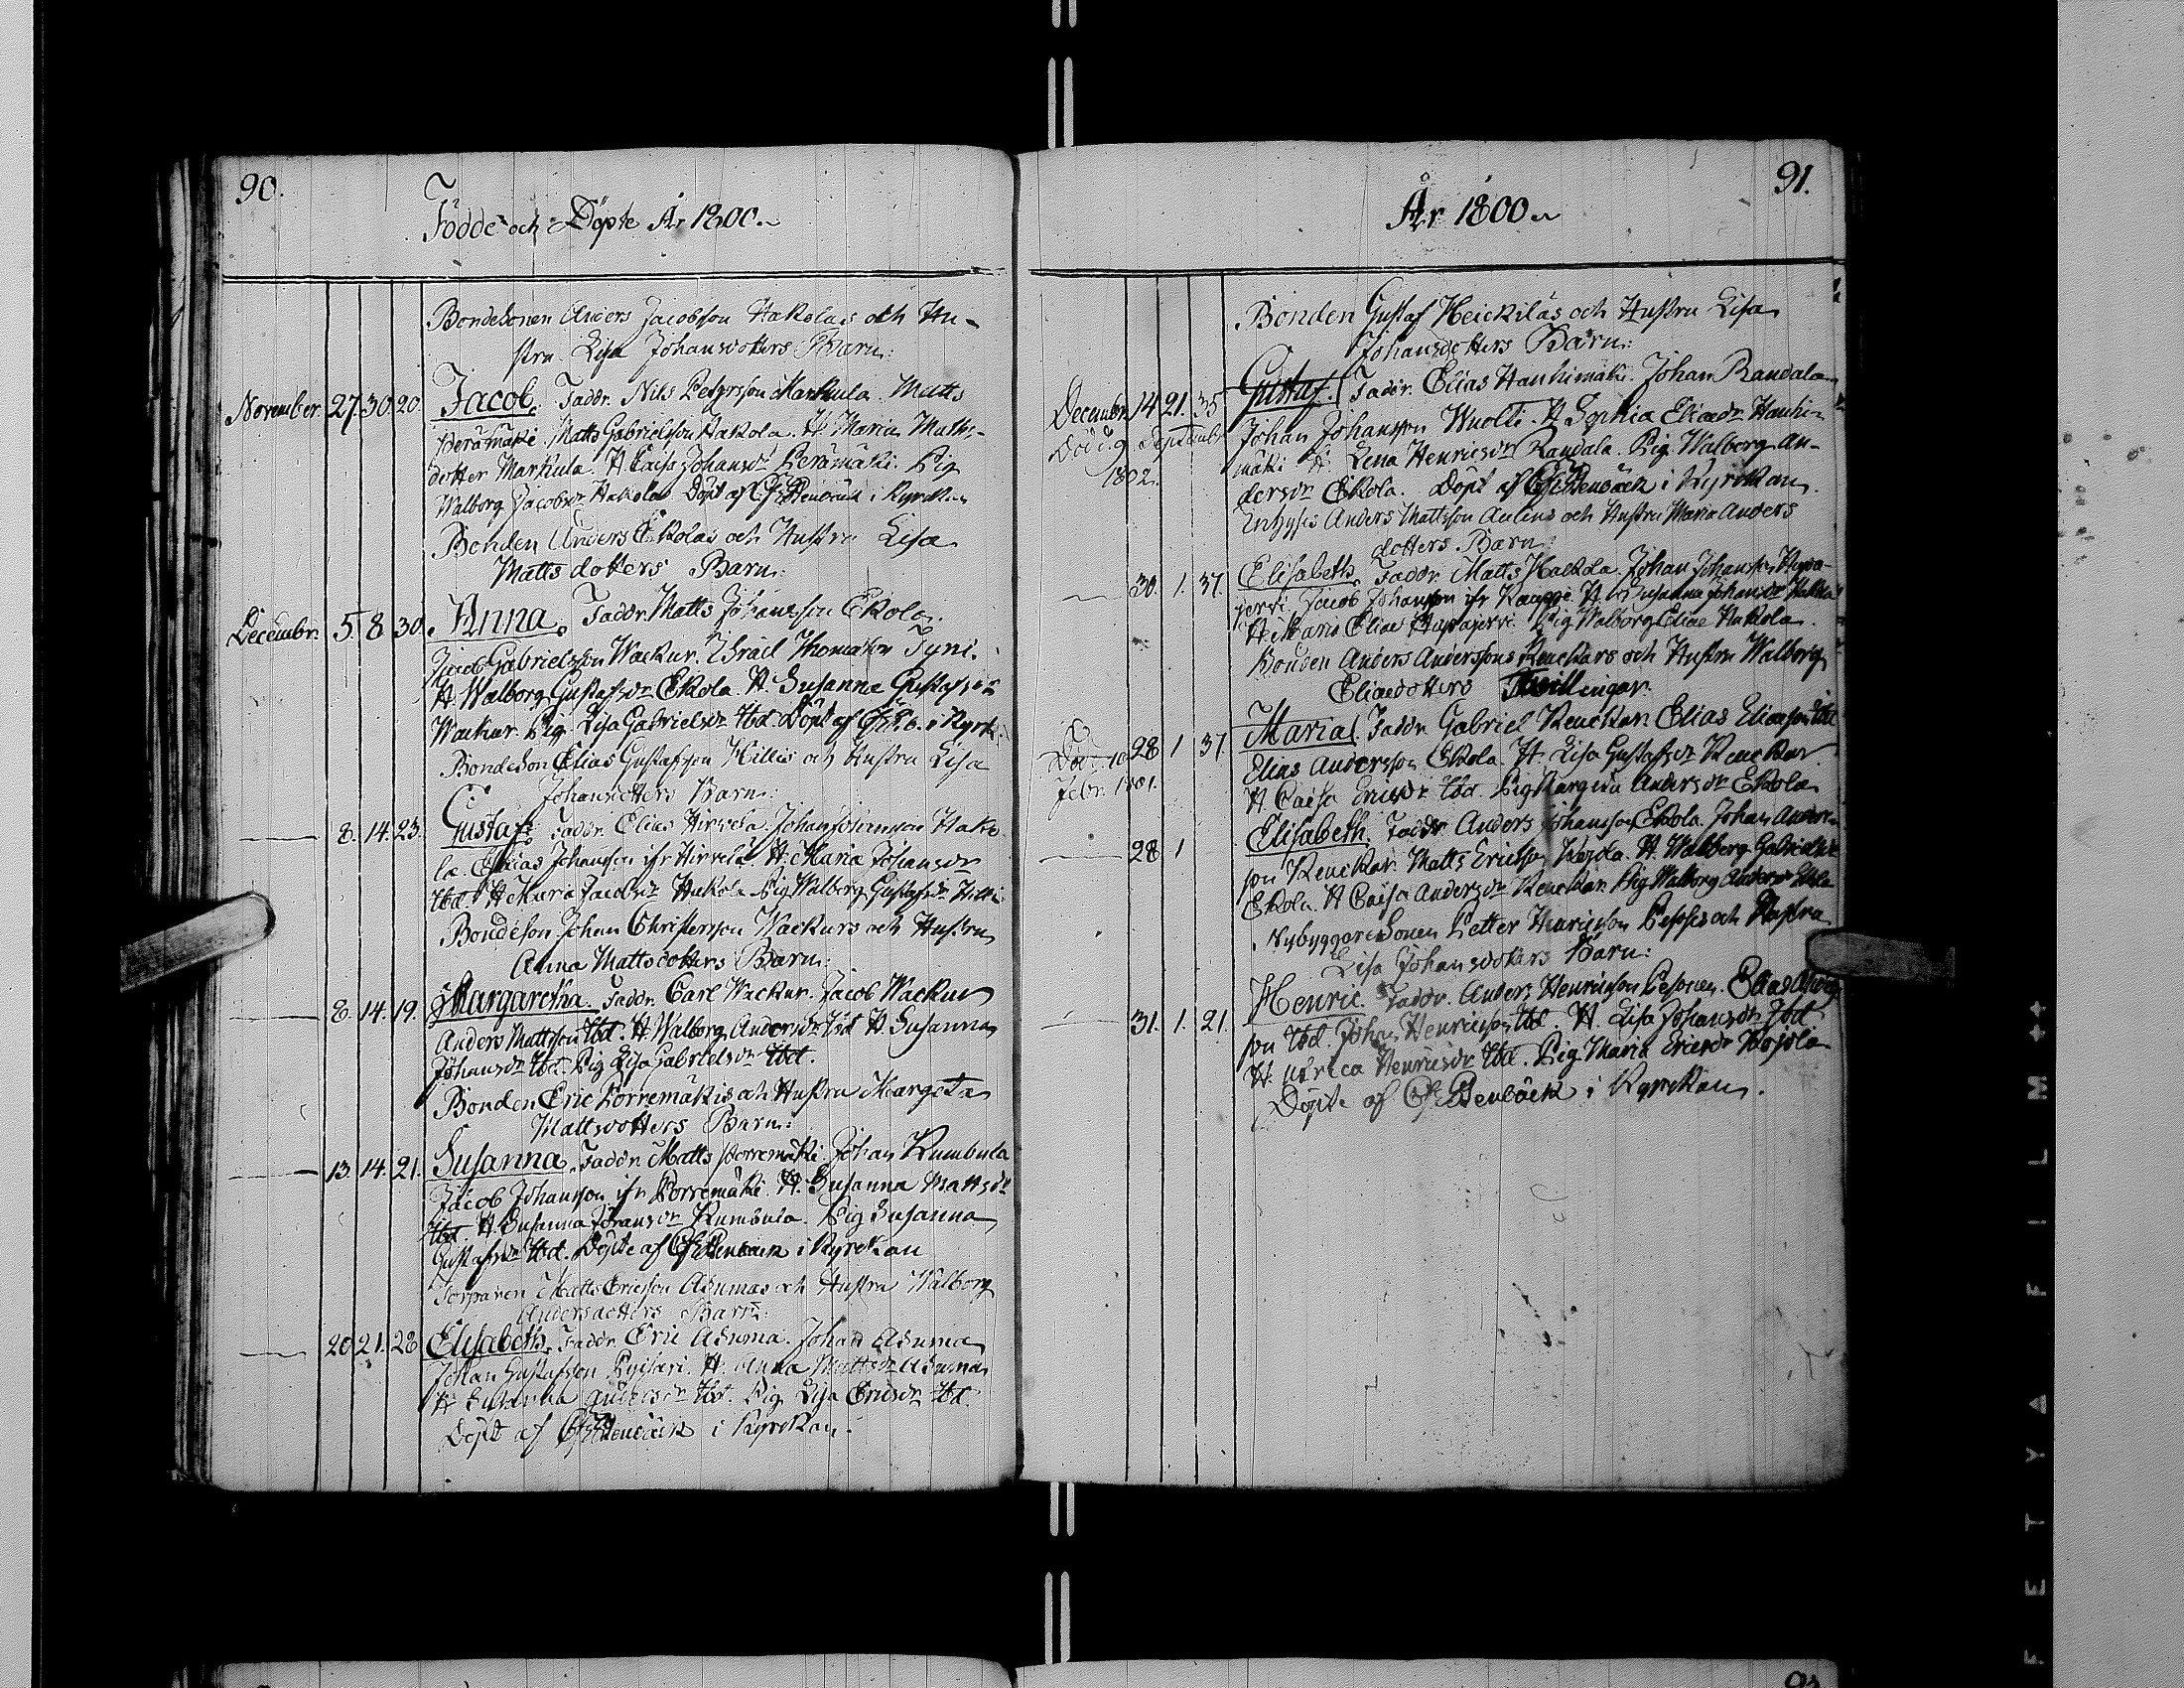 90.
Födde och Döpte År 1800.
Bondesonen Anders Jacobsson Hakolas och Hu-
stru Lisa Johansdotters Barn:
November. 27. 30. 20. Jacob. Faddr. Nils Petersson Markula. Matts
Perämäki Matts Gabrielsson Hakola. H. Maria Matts-
dotter Markula. H. Caisa Johansdr Perämäki. Pig
Walborg Jacobsdr Hakola. Döpt af i Kyrckan
Bonden Anders Ekolas och Hustru Lisa
Mattsdotters Barn:
Decembr. 5. 8. 30. Anna. Faddr. Matts Johansson Ekola.
Jacob Gabrielsson Wackur. Israel Thomasson Tyni.
H. Walborg Gustafsdr Ekola. H. Susanna Gustafsdr
Wackur. Pig. Lisa Gabrielsdr Ibd. Döpt af i Kyrk.
Bondeson Elias Gustafsson Hillis och Hustru Lisa
Johansdotters Barn:
8. 14. 23. Gustaf. Faddr. Elias Hirvelä. Johan Johansson Hako
la. Elias Johansson ifr Hirvelä. H. Maria Johansdr
Ibd. H. Maria Jacobsdr Hakola. Pig Walborg Gustafsdr Hilli
Bondeson Johan Christersson Wackurs och Hustru
Anna Mattsdotters Barn:
8. 14. 19. Margaretha. Faddr. Carl Wackur. Jacob Wackur
Anders Mattsson Ibd. H. Walborg Andersdr Ibd H. Susanna
Johansdr Ibd. Pig Lisa Gabrielsdr Ibd.
Bonden Eric Porremäkis och Hustru Margeta
Mattsdotters Barn:
13. 14. 21. Susanna. Faddr. Matts Porremäki. Johan Kumbula
Jacob Johansson ifr Porremäki. H. Susanna Mattsdr
Ibd. H. Susanna Johansdr Kumbula. Pig Susanna
Gustafsdr Ibd. Döpte af i Kyrckan
Torparen Matts Ericsson Asumas och Hustru Walborg
Andersdotters Barn:
20. 21. 28. Elisabeth. Faddr. Eric Asuma. Johan Asuma
Johan Gustafsson H. Anna Mattsdr Asuma
H Susanna Andersdr Ibd. Pig Lisa Ericsdr Ibd.
Döpt af i Kyrckan.
91.
År 1800.
Bonden Gustaf Heickiläs och Hustru Lisa
Johansdotters Barn:
Decembr. 14. 21. 35 Gustaf. Faddr. Elias Hanhimäki. Johan Randala
Död d. 9 Septembr Johan Johansson Wuolti. H Sophia Eliædr Hanhi-
1802. mäki H. Lena Henricsdr Randala. Pig Walborg An-
dersdr Ekola. Döpt af i Kyrckan.
Inhyses Anders Mattsson Aulins och Hustru Maria Anders
dotters Barn
30. 1. 37. Elisabeth. Faddr. Matts Hackola. Johan Johansson
Jacob Johansson ifr H. Susanna Johansdr
H. Maria Eliæ Pig Walborg Eliæ Hakola.
Bonden Anders Anderssons Renckars och Hustru Walborg
Eliædotters Twillingar.
28 1 37. Maria. Faddr Gabriel Renckar Elias Eliasson Ibd
Död 10 Elias Andersson Ekola. H. Lisa Gustafsdr Renckar.
Febr. 1801. H. Caisa Ericsdr Ibd. Pig Margeta Andersdr Ekola
28 1 Elisabeth. Faddr. Anders Johansson Ekola. Johan Anders-
son Renckar. Matts Ericsson H. Walborg Gabrielsdr
Ekola. H Caisa Andersdr Renckar. Pig Walborg Andersdr
Nybyggaresonen Petter Henricsson och Hustru
Lisa Johansdotters Barn:
31. 1. 21. Henric. Faddr. Anders Henricsson Pesonen. Elias
son Ibd. Johan Henricsson Ibd. H. Lisa Johansdr Ibd
H. Ulrica Henricsdr Ibd. Pig Maria Ericsdr
Döpte af i Kyrckan.
FETYAFILM